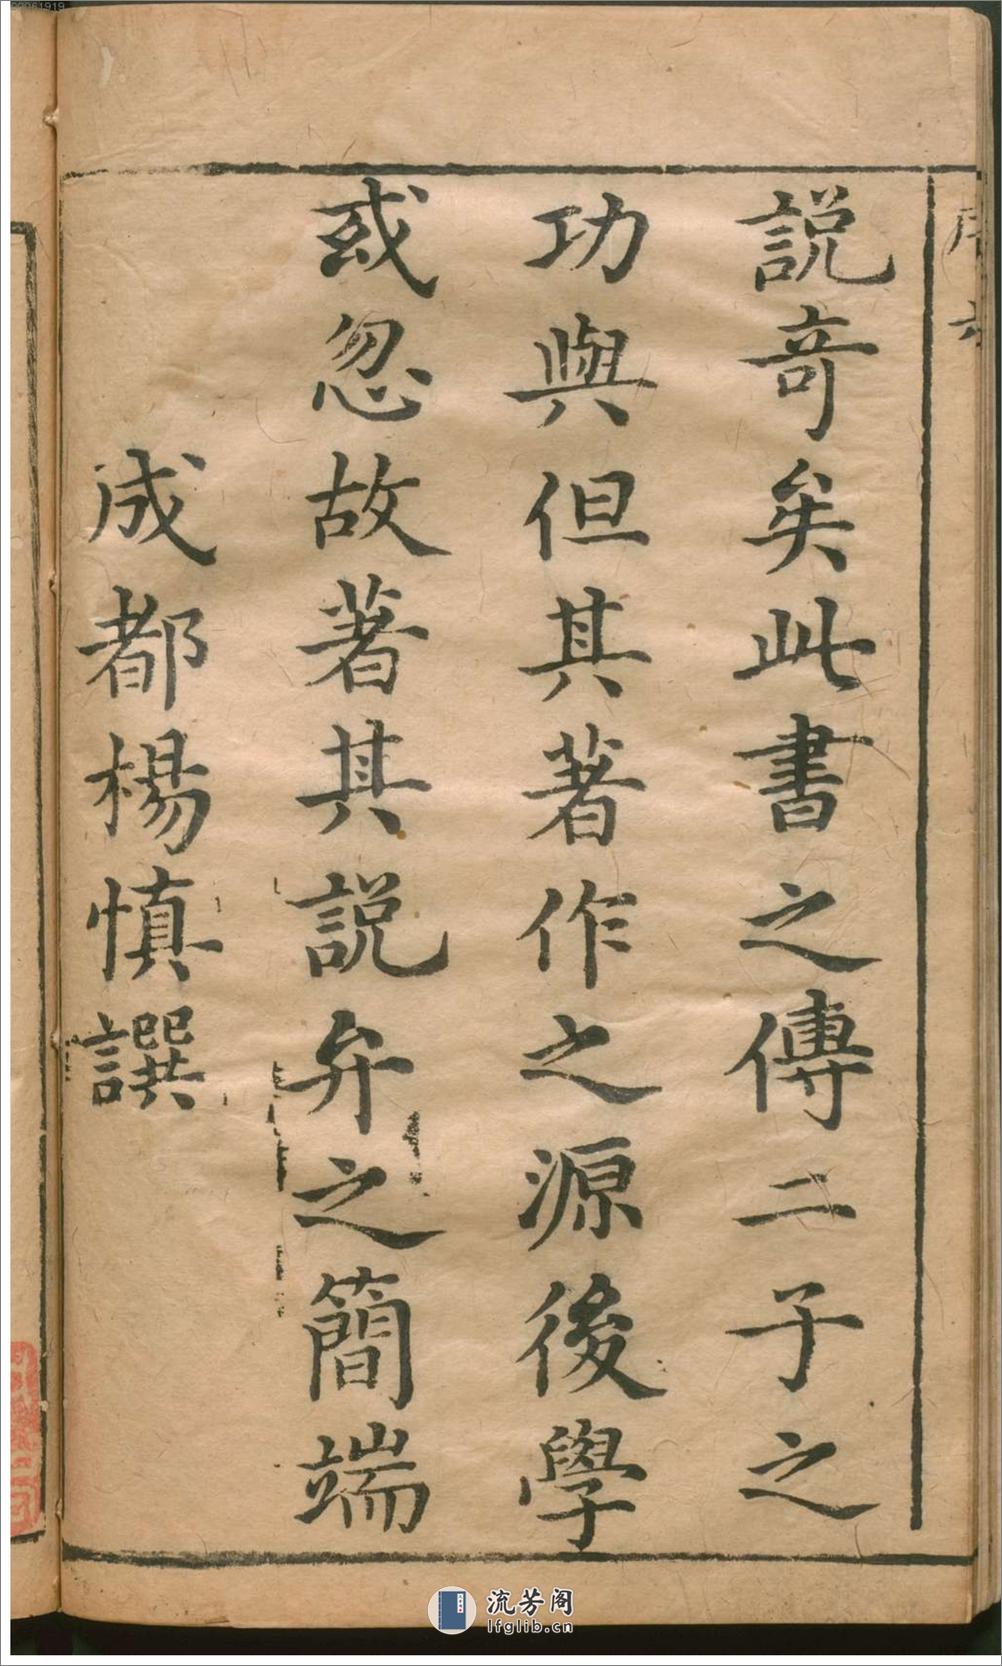 說竒矣此書之傳二子之
功與但其著作之源後學
或忽故著其說弁之簡端
成都楊慎譔
流芳阁
lfglib.cn